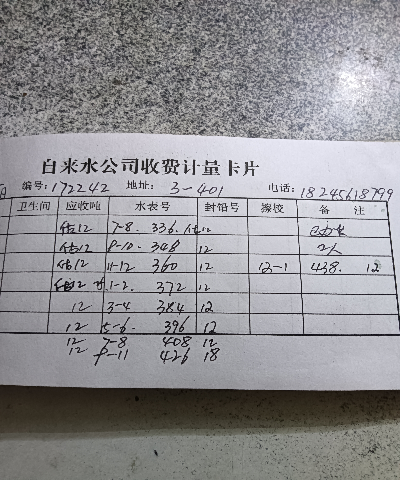 自来水公司收费计量卡片
编号: 172242 地址: 3-401 电话: 18245618799
卫生间 应收吨 水表号 封铅号 接校 备 注
估12 7-8. 336. 估12
估12 9-10. 348 12 2人
估12 11-12 360 12 12-1 438. 12
1-2. 372 12
12 3-4 384 12
12 5-6. 396 12
12 7-8 408 12
12 9-11 426 18